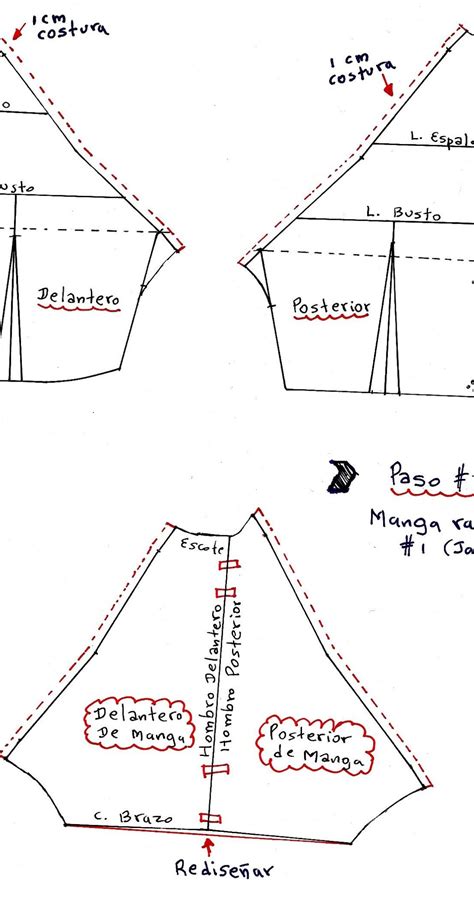 1 cm
costura
1 cm
costura
o
L. Espal
usto
L. Busto
Delantero
Posterior
Paso #
Manga ra
#1 (Ja
Escote
Hombro Delantero
Hombro Posterior
Delantero
De manga
Posterior
de Manga
C. Brazo
Rediseñar